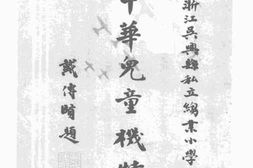 浙江吳興縣私立縐業小學
中華兒童機
戴傳賢題